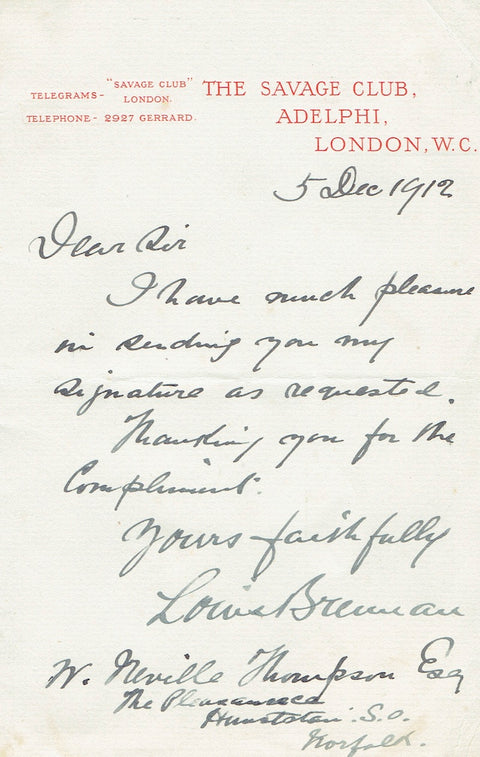 TELEGRAMS- "SAVAGE CLUB" LONDON.
TELEPHONE- 2927 GERRARD.
THE SAVAGE CLUB,
ADELPHI,
LONDON, W.C.
5 Dec 1912
Dear Sir
I have much pleasure
in sending you my
signature as requested.
Thanking you for the
Compliment.
Yours faithfully
Louis Brennan
W. Neville Thompson Esq
The
Hunstston. S.O.
Norfolk.